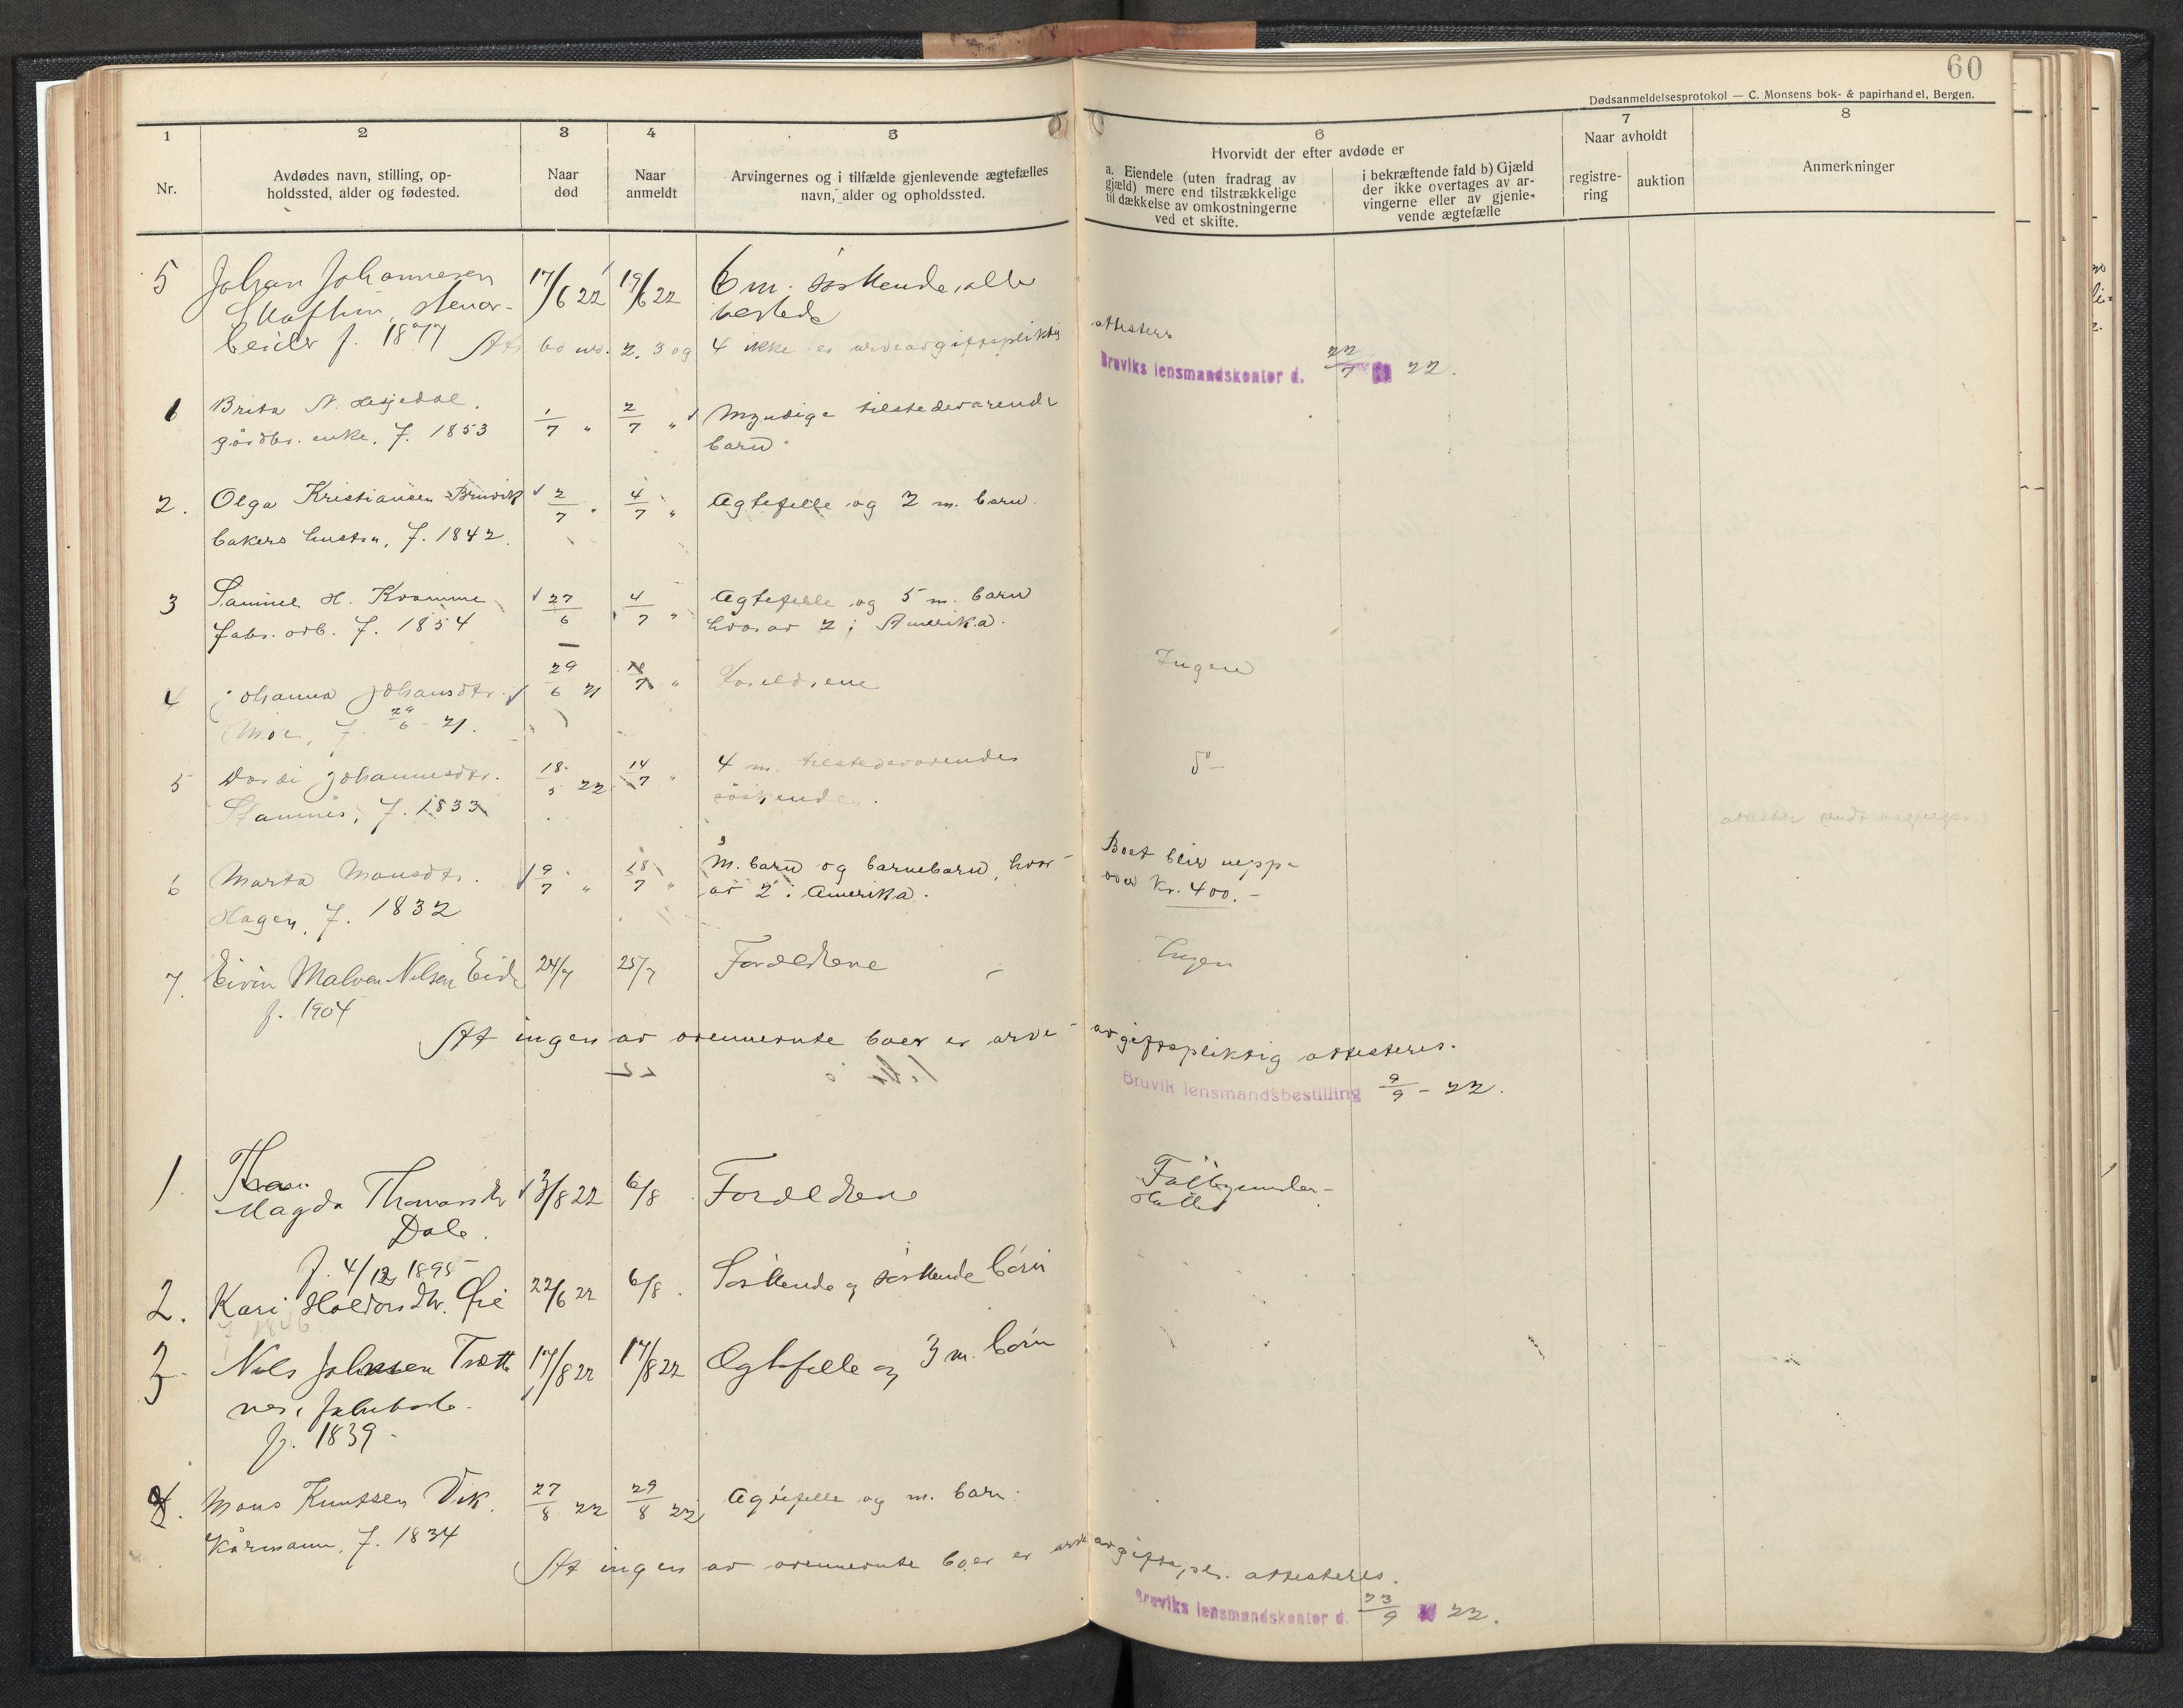 60
Dødsanmeldelsesprotokol — C. Monsens bok- & papirhandel, Bergen.
1 2 3 4 5 6 7 8
Nr.
Avdødes navn, stilling, op-
holdssted, alder og fødested.
Naar
død
Naar
anmeldt
Arvingernes og i tilfælde gjenlevende ægtefælles
navn, alder og opholdssted.
Hvorvidt der efter avdøde er
a. Eiendele (uten fradrag av
gjæld) mere end tilstrækkelige
til dækkelse av omkostningerne
ved et skifte.
i bekræftende fald b) Gjæld
der ikke overtages av ar-
vingerne eller av gjenle-
vende ægtefælle
Naar avholdt
registre-
ring
auktion
Anmerkninger
5 Johan Johannesen 17/6 22 19/6 22 6 m. søskende, alle
stenar-
beider f. 1877 At bo nr. 2. 3 og 4 ikke er arveavgiftspliktig attesteres
Bruviks lensmandskontor d. 22/7 22.
1 Brita N. Hesjedal. 1/7 " 2/7 " Myndige tilstedeværende
gårdbr. enke. f. 1853 barn.
2. Olga Kristiansen Bruvik 2/7 " 4/7 " Ægtefelle og 2 m. barn.
bakers hustru, f. 1842.
3 Samuel H. Kvamme 27/6 4/7 " Ægtefelle og 5 m. barn
fabr. arb. f. 1854 hvorav 2 i Amerika.
4 Johanna Johansdtr. 29/6 21 7 " Foreldrene Ingen
Moe, f. 29/6 - 21.
5 Dordi Johannesdtr. 18/5 22 14/7 " 4 m. tilstedeværendes do
Stamnes, f. 1833 søskende.
6 Marta Monsdtr. 9/7 " 18/7 " m. barn og barnebarn, hvor- Boet blir neppe
Hagen, f. 1832 av 2 i Amerika. over kr. 400.-
7. Eivin Malvin Nilsen Eide 24/7 25/7 Forældrene Ingen
f. 1904
At ingen av ovennevnte boer er arve-avgiftspliktig attesteres.
Bruvik lensmandsbestilling 9/9 - 22.
1. Magda Thomasdtr 3/8 22 6/8 Forældrene Fattigunder-
Dale. støttet
f. 4/12 1895
2. Kari Haldorsdtr. Øie 22/6 22 6/8. Søskende og søskende børn
3 Nils Johnsen Trætte 17/8 22 17/8 22 Ægtefelle og 3 m. børn
nes,
f. 1839.
4. Mons Knutsen Vik. 27/8 22 29/8 22 Ægtefelle og m. barn.
Kårmann, f. 1834
At ingen av ovennevnte boer er arveavgiftspl. attesteres.
Bruviks lensmandskontor d. 23/9 22.